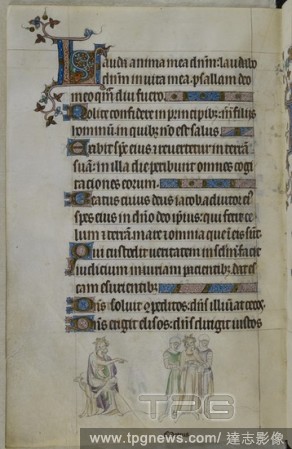 Lauda anima mea dnm: laudabo
dnm in vita mea: psallam deo
meo qm diu fuero.
Nolite confidere in principibz: in filijs
hominum in quibz no est salus.
Exibit sps eius a revertetur in terra
sua: in illa die peribunt omnes cogi
taciones eorum.
Beatus cuius deus iacob adiutor ei
spes eius in dno deo ipius: qui fecit ce
lum a terram mare a omnia que i eis sut.
Qui custodit veritatem in seclm facit
iudicium iniuriam pacientibz: dat es
cam esurientibz.
Dns soluit opeditos: dns illuiat cecos.
Dns erigit elisos: dns dirigit iustos
TPG
www.tpgnews.com/達志影像